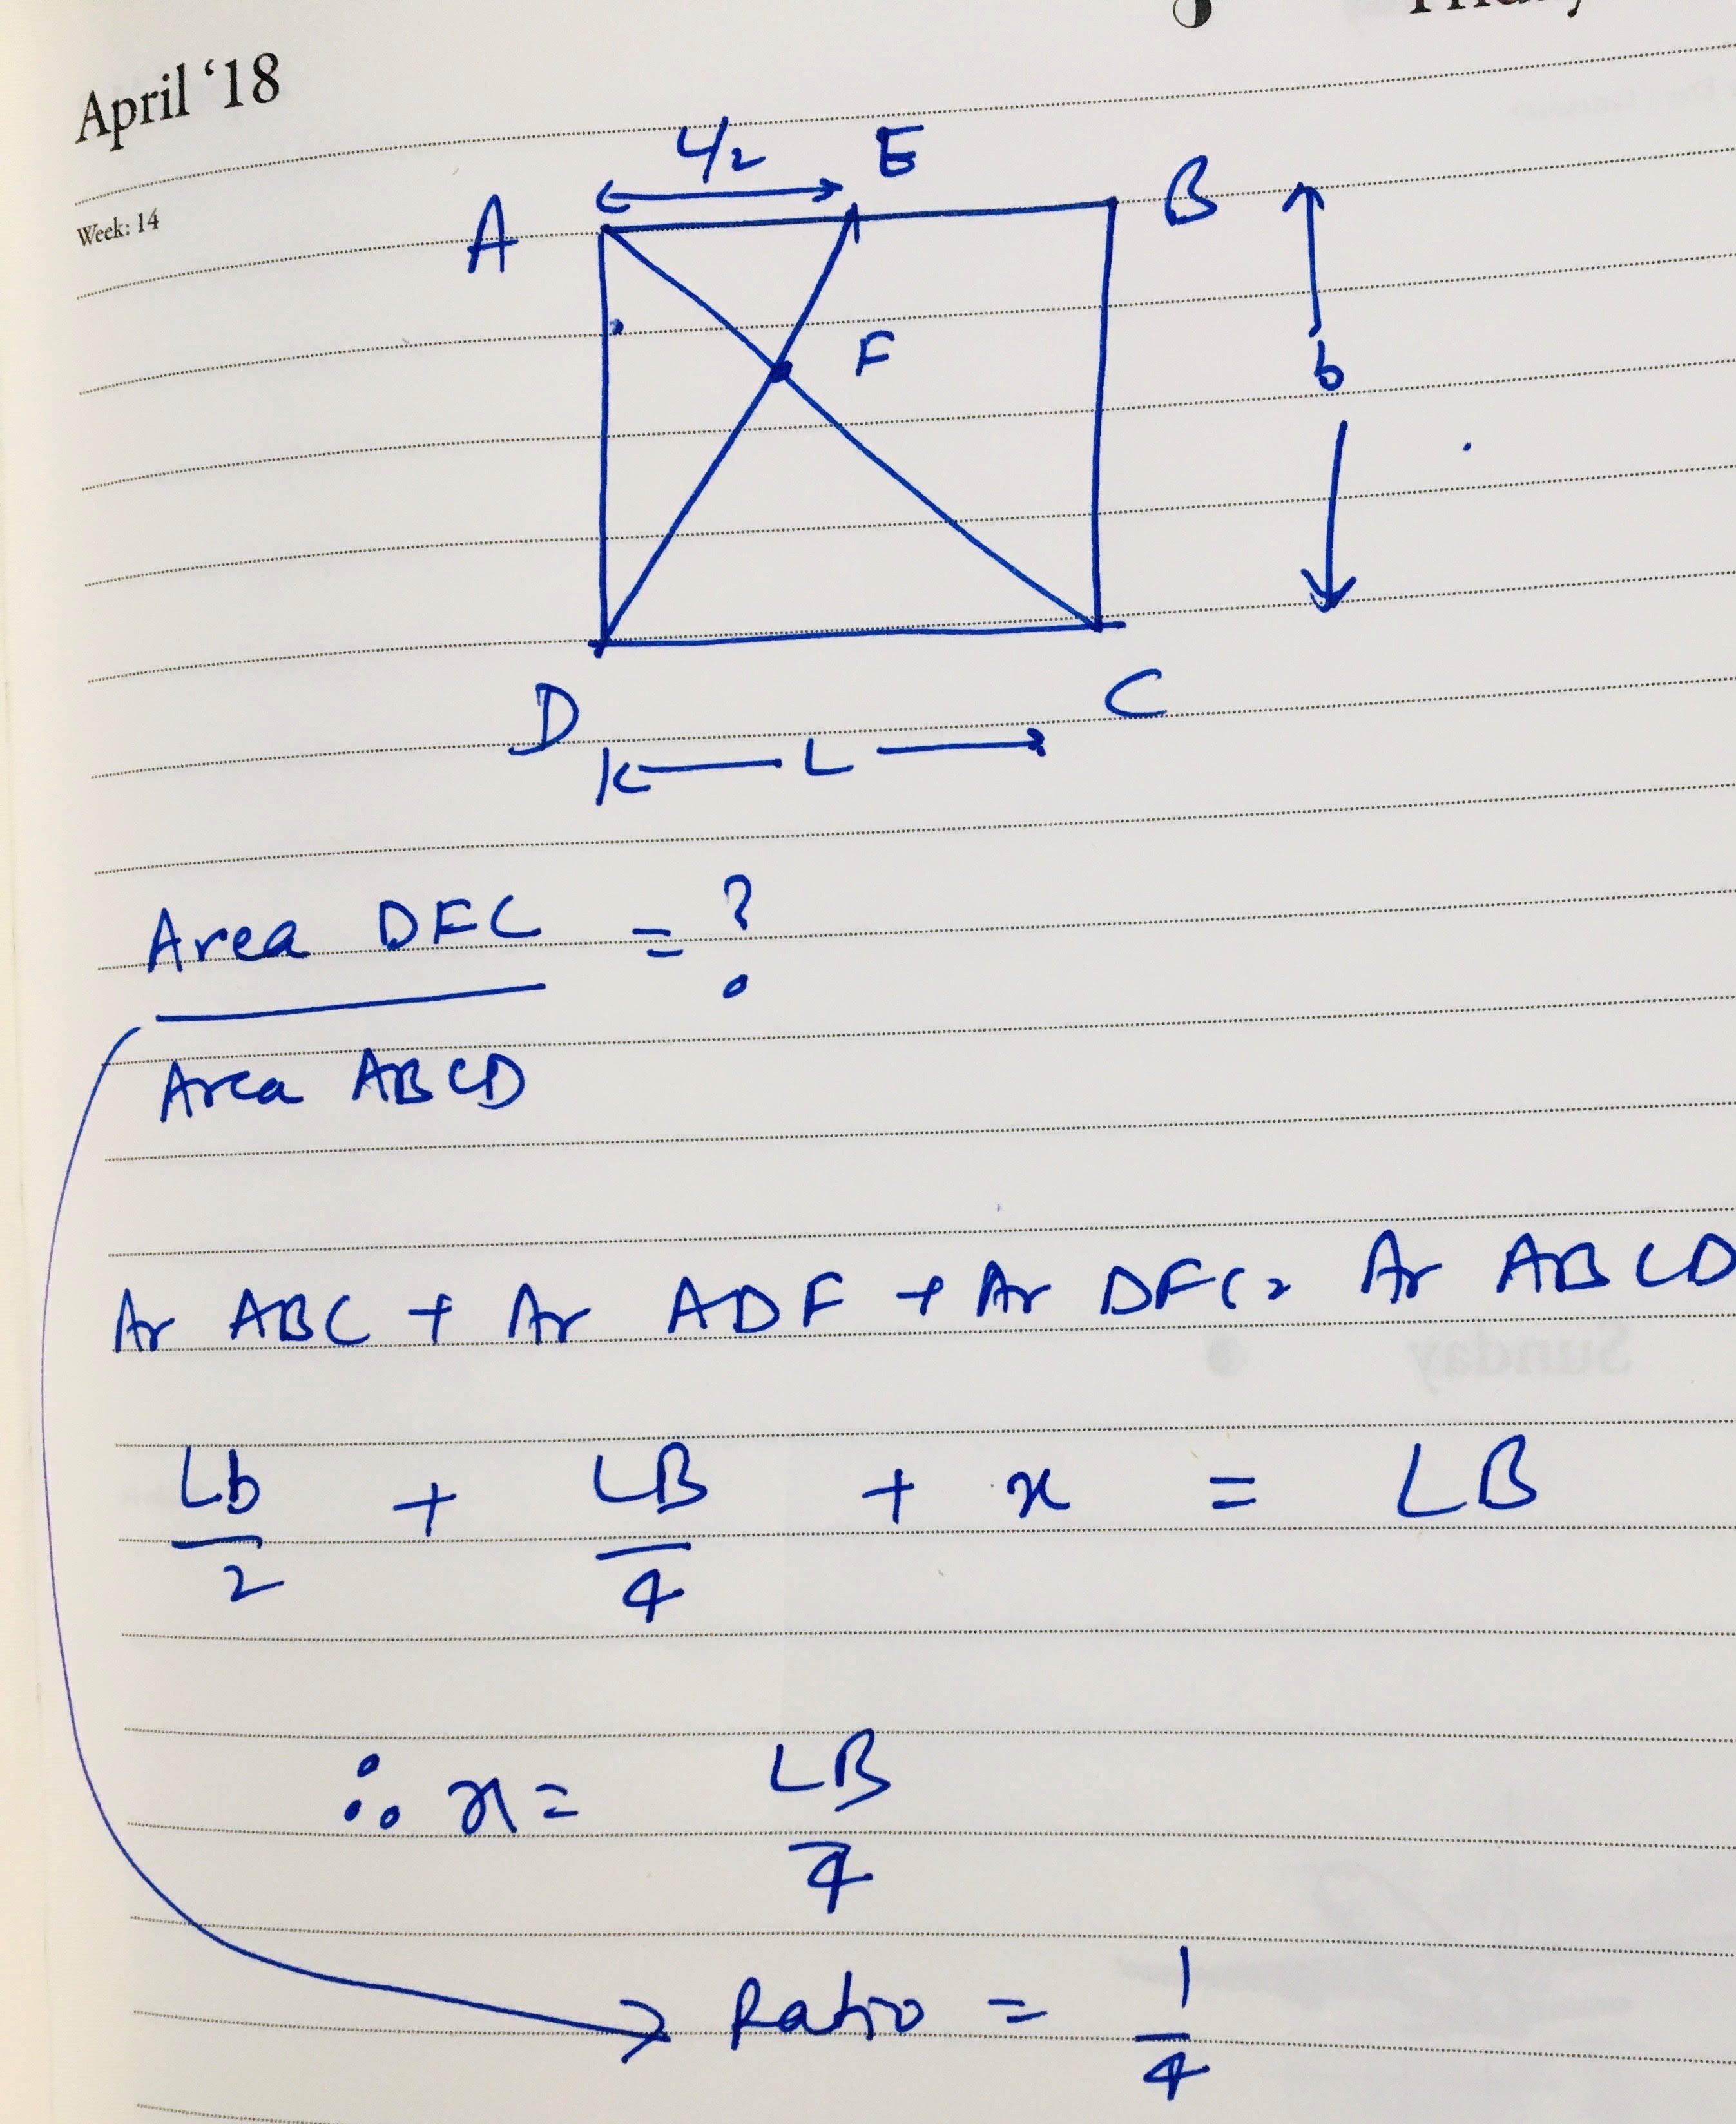 Friday
April ‘18
Week: 14
L/2
A E B
F
b
D C
L
Area DFC = ?
Area ABCD
Ar ABC + Ar ADF + Ar DFC = Ar ABCD
Sunday
Lb/2 + LB/4 + x = LB
∴ x = LB/4
Ratio = 1/4